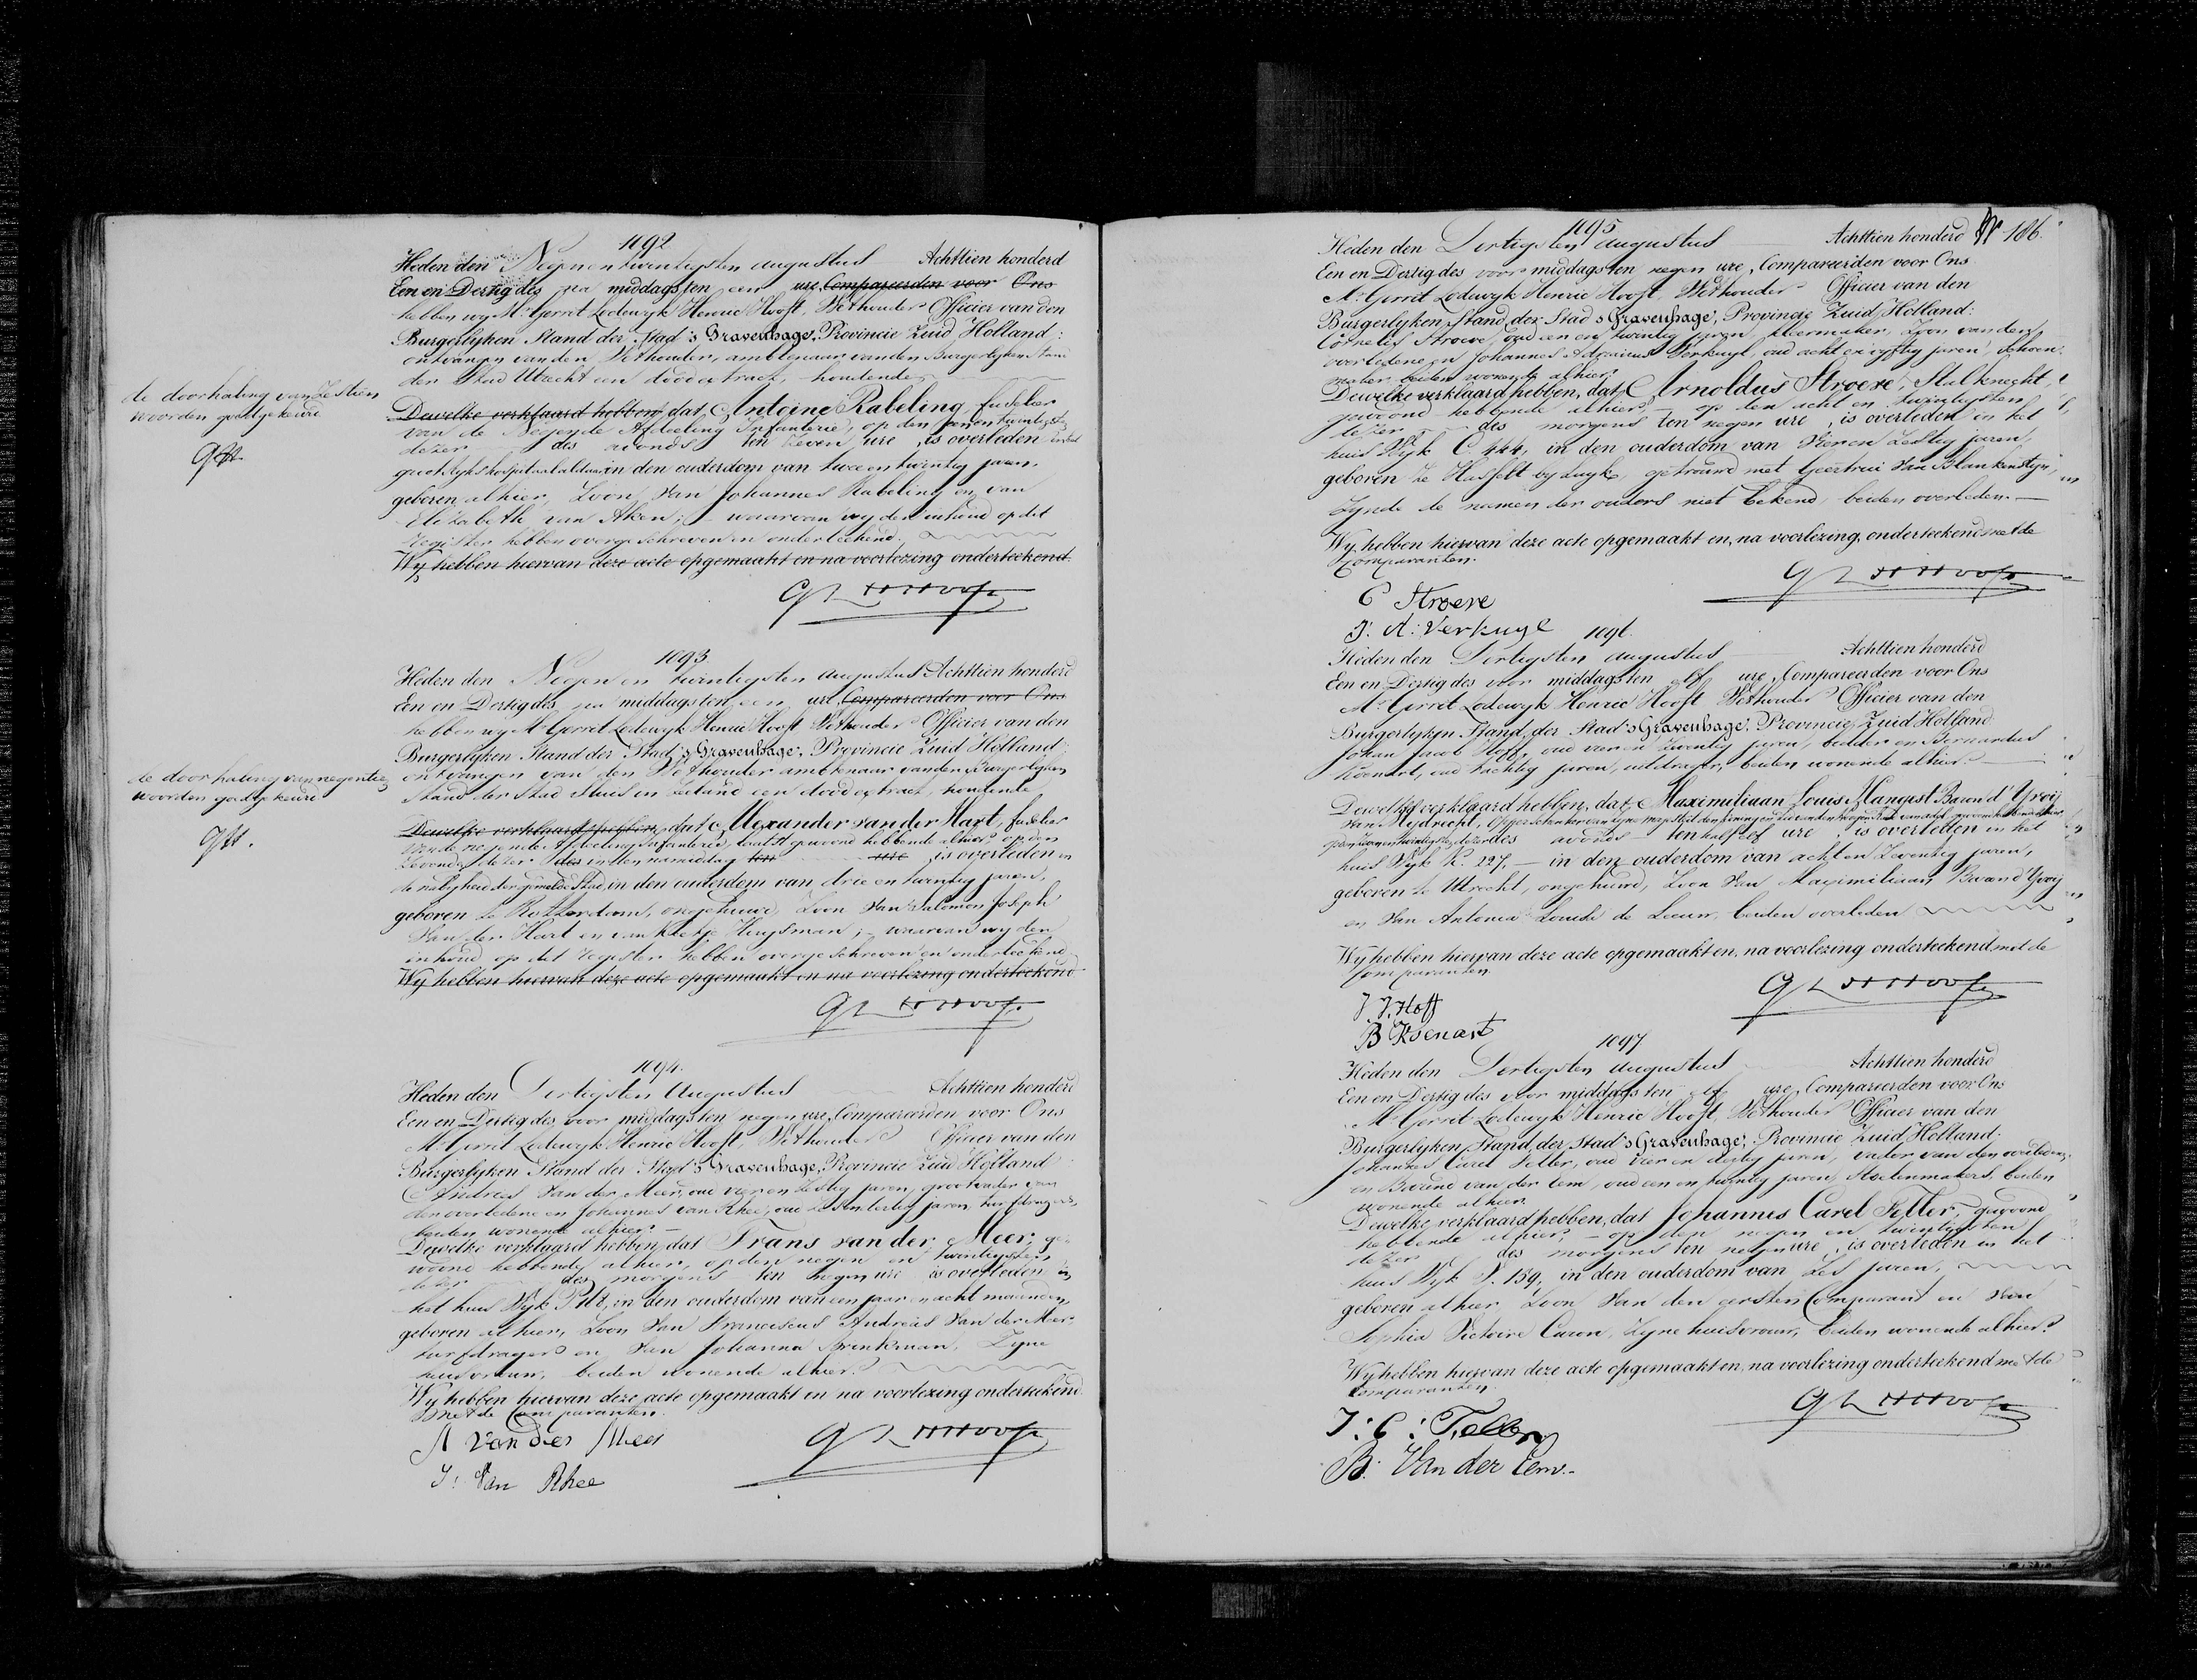 1092
Heden den Negen en twintigsten augustus Achttien honderd
Een en Dertig des na middags ten een ure, Compareerden voor Ons
hebben wy Mr. Gerrit Lodewyk Henric Hooft, Wethouder Officier van den
Burgerlyken Stand der Stad 's Gravenhage, Provincie Zuid Holland:
ontvangen van den Wethouder, ambtenaar van den Burgerlyken Stand
der Stad Utrecht een doodextract, houdende
Dewelke verklaard hebben, dat Antoine Rabeling fuselier
van de Negende Afdeeling Infanterie, op den zeven en twintigsten
dezer des avonds ten zeven ure, is overleden in het
groot Rykshospitaal aldaar in den ouderdom van twee en twintig jaren,
geboren alhier, Zoon van Johannes Rabeling en van
Elizabeth van Aken; waarvan wy den inhoud op dit
register hebben overgeschreven en onderteekend.
Wy hebben hiervan deze acte opgemaakt en na voorlezing onderteekend.
GLHHooft
de doorhaling van zestien
woorden goedgekeurd
GH.
1093
Heden den Negen en twintigsten augustus Achttien honderd
Een en Dertig des na middags ten een ure, Compareerden voor Ons
hebben wy Mr. Gerrit Lodewyk Henric Hooft Wethouder Officier van den
Burgerlyken Stand der Stad 's Gravenhage, Provincie Zuid Holland:
ontvangen van den Wethouder ambtenaar van den Burgerlyken
Stand der Stad Sluis in Zeeland een doodextract, houdende
Dewelke verklaard hebben, dat Alexander van der Hart, fuselier
van de negende Afdeeling Infanterie, laatst gewoond hebbende alhier, op den
zevenden dezer des in den namiddag ten ure, is overleden in
de nabyheid der gemelde Stad, in den ouderdom van drie en twintig jaren,
geboren te Rotterdam, ongehuwd, Zoon van Salomon Joseph
van der Hart en van Huysman; waarvan wy den
inhoud op dit register hebben overgeschreven en onderteekend
Wy hebben hiervan deze acte opgemaakt en na voorlezing onderteekend
GLHHooft
de doorhaling van negentien
woorden goedgekeurd
GH.
1094.
Heden den Dertigsten Augustus Achttien honderd
Een en Dertig des voor middags ten negen ure, Compareerden voor Ons
Mr. Gerrit Lodewyk Henric Hooft, Wethouder Officier van den
Burgerlyken Stand der Stad 's Gravenhage, Provincie Zuid Holland
Andries van der Meer, oud vier en zestig jaren, grootvader van
den overledene en Johannes van Rhee, oud zes en dertig jaren turfdragers,
beiden wonende alhier
Dewelke verklaard hebben, dat Frans van der Meer, ge-
woond hebbende alhier, op den negen en twintigsten
dezer des morgens ten negen ure is overleden in
het huis Wyk P. 118, in den ouderdom van een jaar en acht maanden,
geboren alhier, Zoon van Franciscus Andreas van der Meer,
turfdrager en van Johanna Brinkman, Zyne
huisvrouw, beiden wonende alhier.
Wy hebben hiervan deze acte opgemaakt en na voorlezing onderteekend
met de Comparanten.
A van der Meer
J: Van Rhee
GLHHooft
186.
1095
Heden den Dertigsten augustus Achttien honderd
Een en Dertig des voor middags ten negen ure, Compareerden voor Ons
Mr. Gerrit Lodewyk Henric Hooft, Wethouder Officier van den
Burgerlyken Stand der Stad 's Gravenhage, Provincie Zuid Holland:
Cornelis Stroeve, oud een en twintig jaren kleermaker, Zoon van den
overledene en Johannes Adrianus Verkuyl, oud acht en vyftig jaren, schoen-
maker, beiden wonende alhier.
Dewelke verklaard hebben, dat Arnoldus Stroeve, Stalknecht,
gewoond hebbende alhier, op den acht en twintigsten
dezer des morgens ten negen ure, is overleden in het
huis Wyk C. 444, in den ouderdom van vier en zestig jaren,
geboren te Hasselt by Luyk, getrouwd met Geertrui van Blankenstyn,
Zynde de namen der ouders niet bekend, beiden overleden.
Wy hebben hiervan deze acte opgemaakt en, na voorlezing, onderteekend met de
Comparanten.
GLHHooft
C Stroeve
J. A: Verkuyl
1096.
Heden den Dertigsten augustus Achttien honderd
Een en Dertig des voor middags ten elf ure, Compareerden voor Ons
Mr. Gerrit Lodewyk Henric Hooft Wethouder Officier van den
Burgerlyken Stand der Stad 's Gravenhage, Provincie Zuid Holland
Johan Jacob Hoff, oud vier en twintig jaren, en Bernardus
Koenart, oud tachtig jaren, uitdrager, beiden wonende alhier.
Dewelke verklaard hebben, dat Maximiliaan Louis Mangest Baron d'Yvoy
van Mydrecht, Opperschenker van Zyne Majesteit den Koning
dezer des avonds ten half elf ure, is overleden in het
huis Wyk K. 227, in den ouderdom van acht en zeventig jaren,
geboren te Utrecht, ongehuwd, Zoon van Maximiliaan Baron d'Yvoij
en van Antonia Louise de Leeuw, beiden overleden
Wy hebben hiervan deze acte opgemaakt en, na voorlezing onderteekend met de
Comparanten.
GLHHooft
J. J. Hoff
B Koenart
1097
Heden den Dertigsten augustus Achttien honderd
Een en Dertig des voor middags ten elf ure, Compareerden voor Ons
Mr. Gerrit Lodewyk Henric Hooft, Wethouder Officier van den
Burgerlyken Stand der stad 's Gravenhage, Provincie Zuid Holland:
Johannes Carel Teller, oud vier en dertig jaren, vader van den overledene,
en Barend van der Eem, oud een en twintig jaren, Stoelenmakers, beiden
wonende alhier
Dewelke verklaard hebben, dat Johannes Carel Teller, gewoond
hebbende alhier, op den negen en twintigsten
dezer des morgens ten negen ure, is overleden in het
huis Wyk P. 139, in den ouderdom van zes jaren,
geboren alhier, Zoon van den eersten Comparant en van
Sophia Victoire Caron, Zyne huisvrouw, beiden wonende alhier.
Wy hebben hiervan deze acte opgemaakt en, na voorlezing onderteekend met de
Comparanten.
GLHHooft
J: C: Teller
B. Van der Eem.